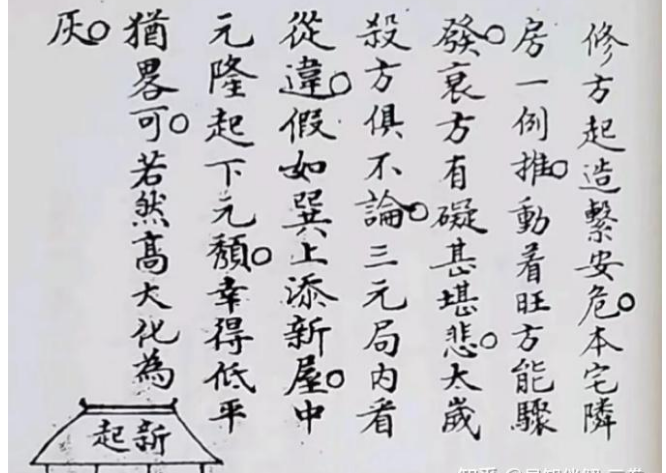 修方起造繫安危○本宅隣
房一例推○動着旺方能驟
發○衰方有礙甚堪悲○太歲
殺方俱不論○三元局内看
從違○假如巽上添新屋○中
元隆起下元頽○幸得低平
猶畧可○若然高大化為
灰○
新起